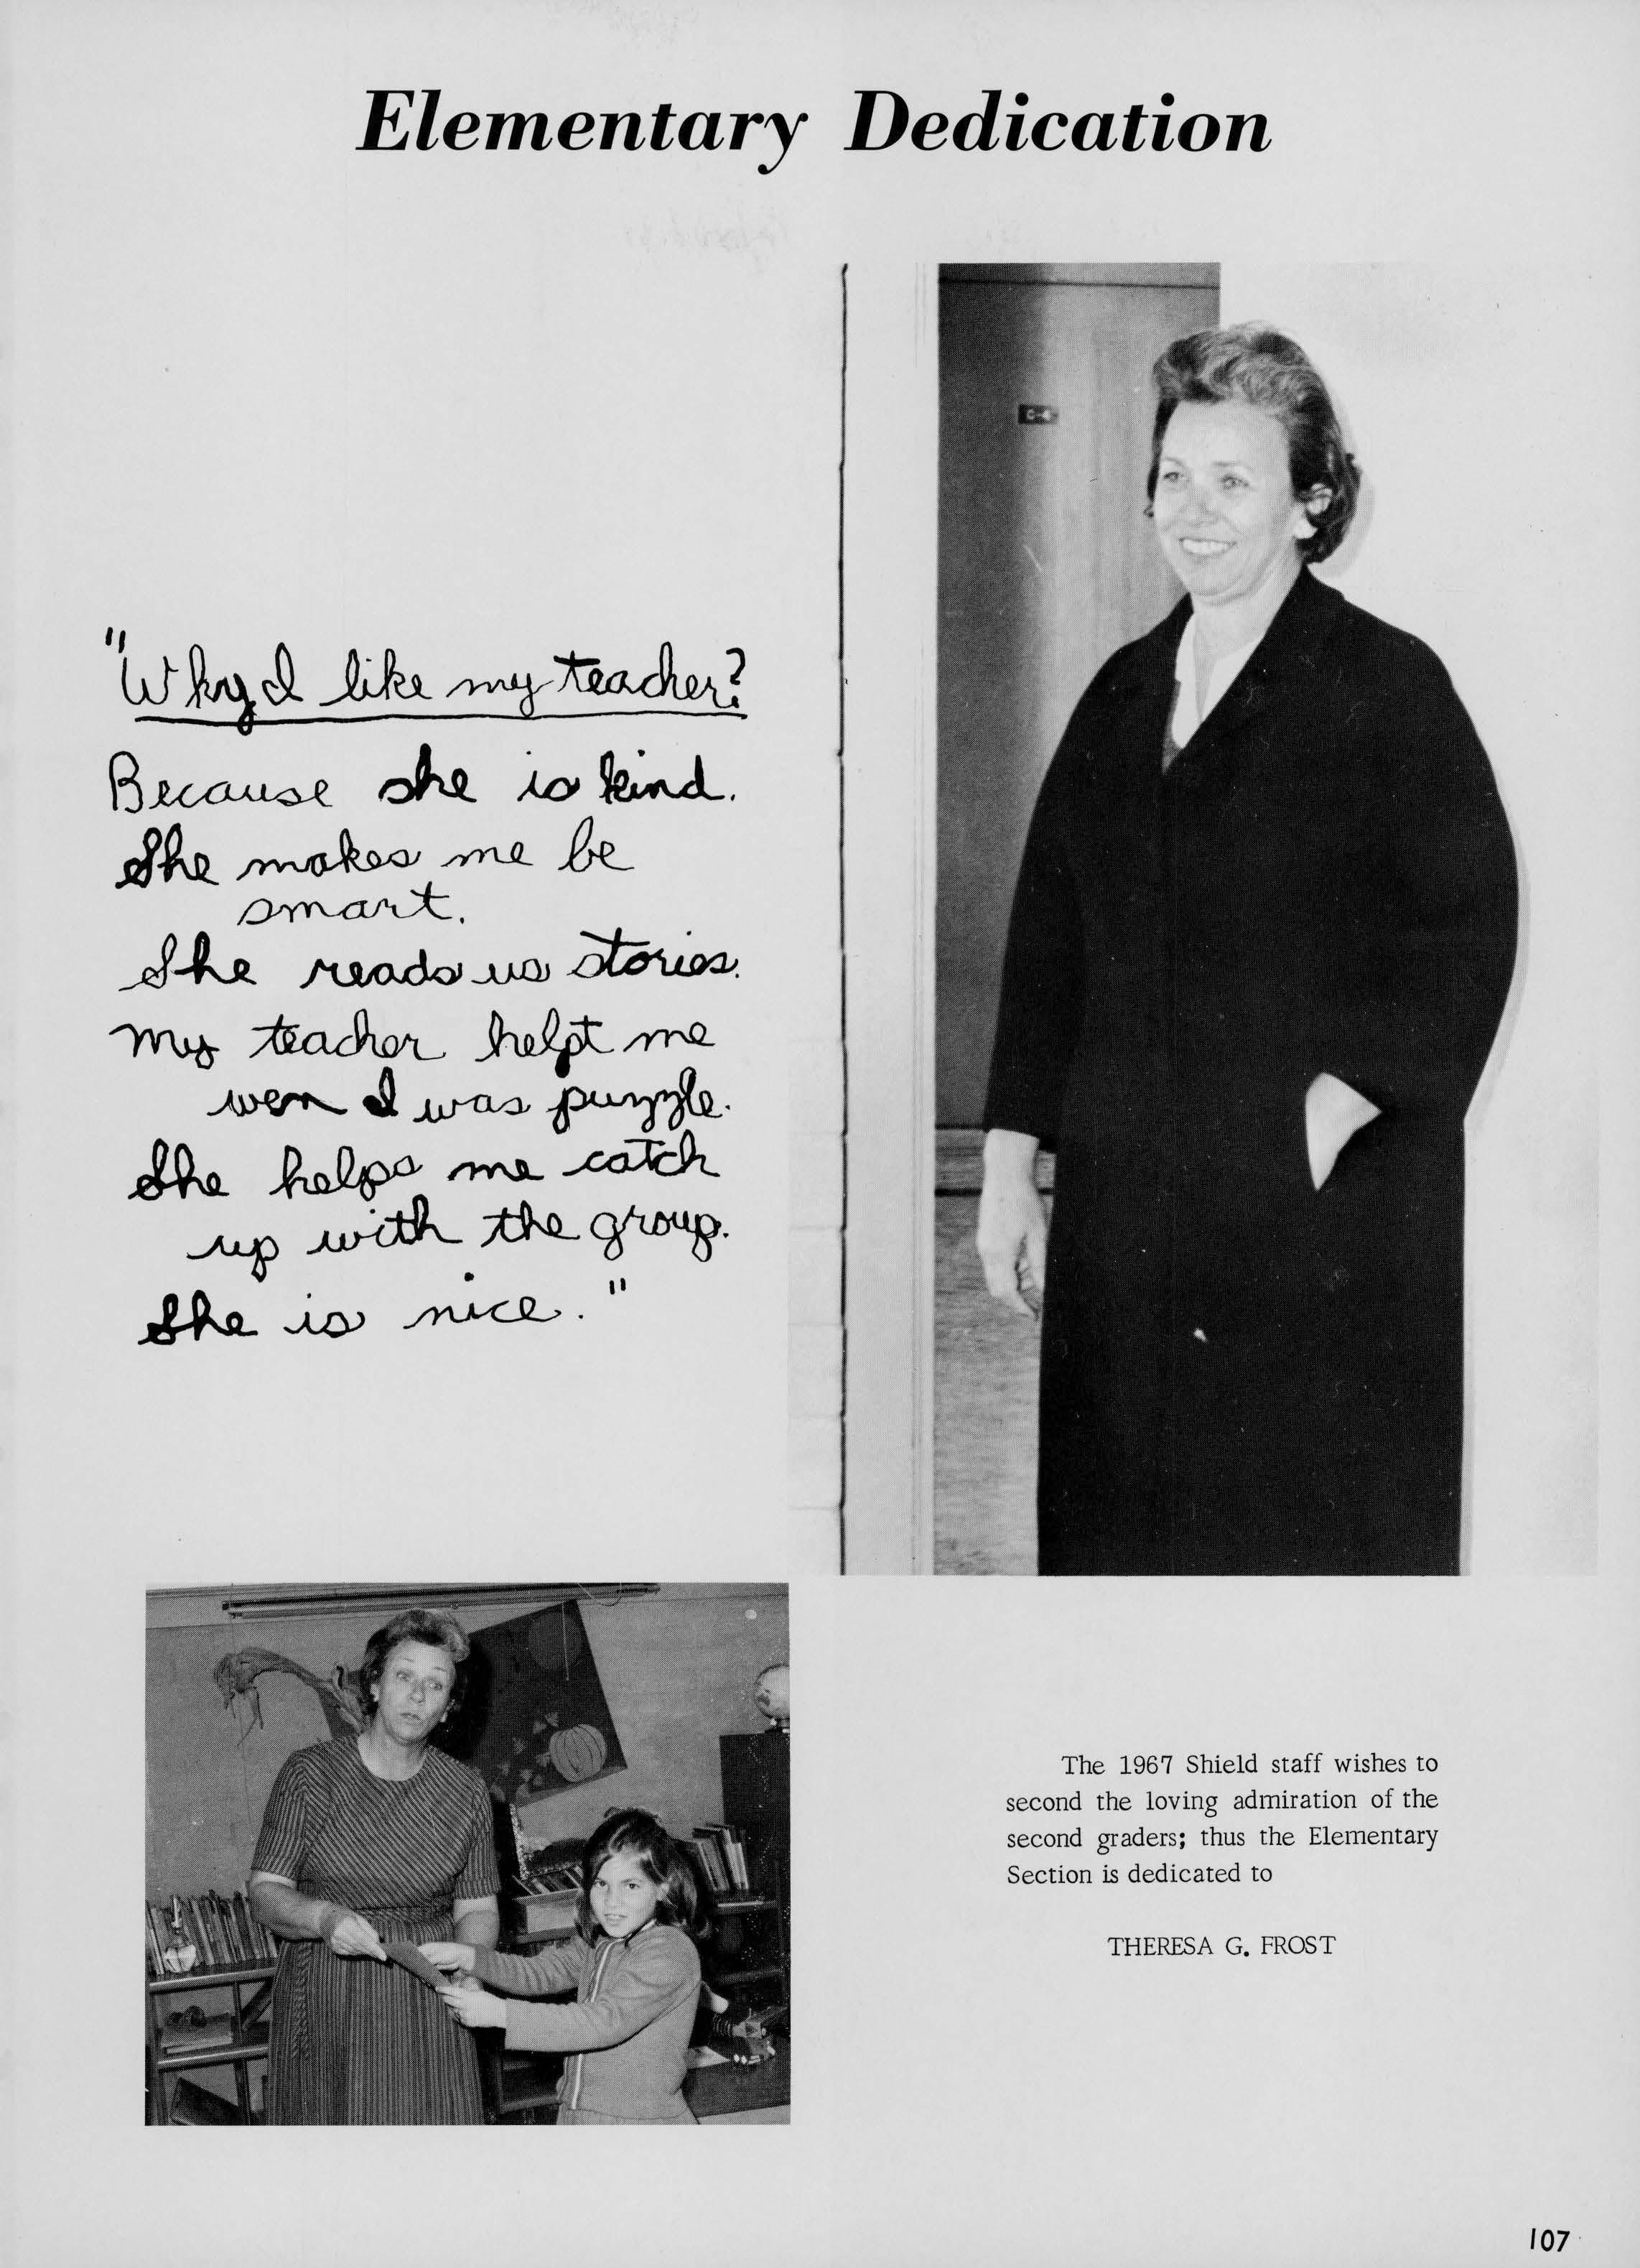 Elementary Dedication
"Why I like my teacher?
Because she is kind.
She makes me be
smart.
She reads us stories.
My teacher helpt me
wen I was puzzle.
She helps me catch
up with the group.
She is nice."
C-4
The 1967 Shield staff wishes to
second the loving admiration of the
second graders; thus the Elementary
Section is dedicated to
THERESA G. FROST
107